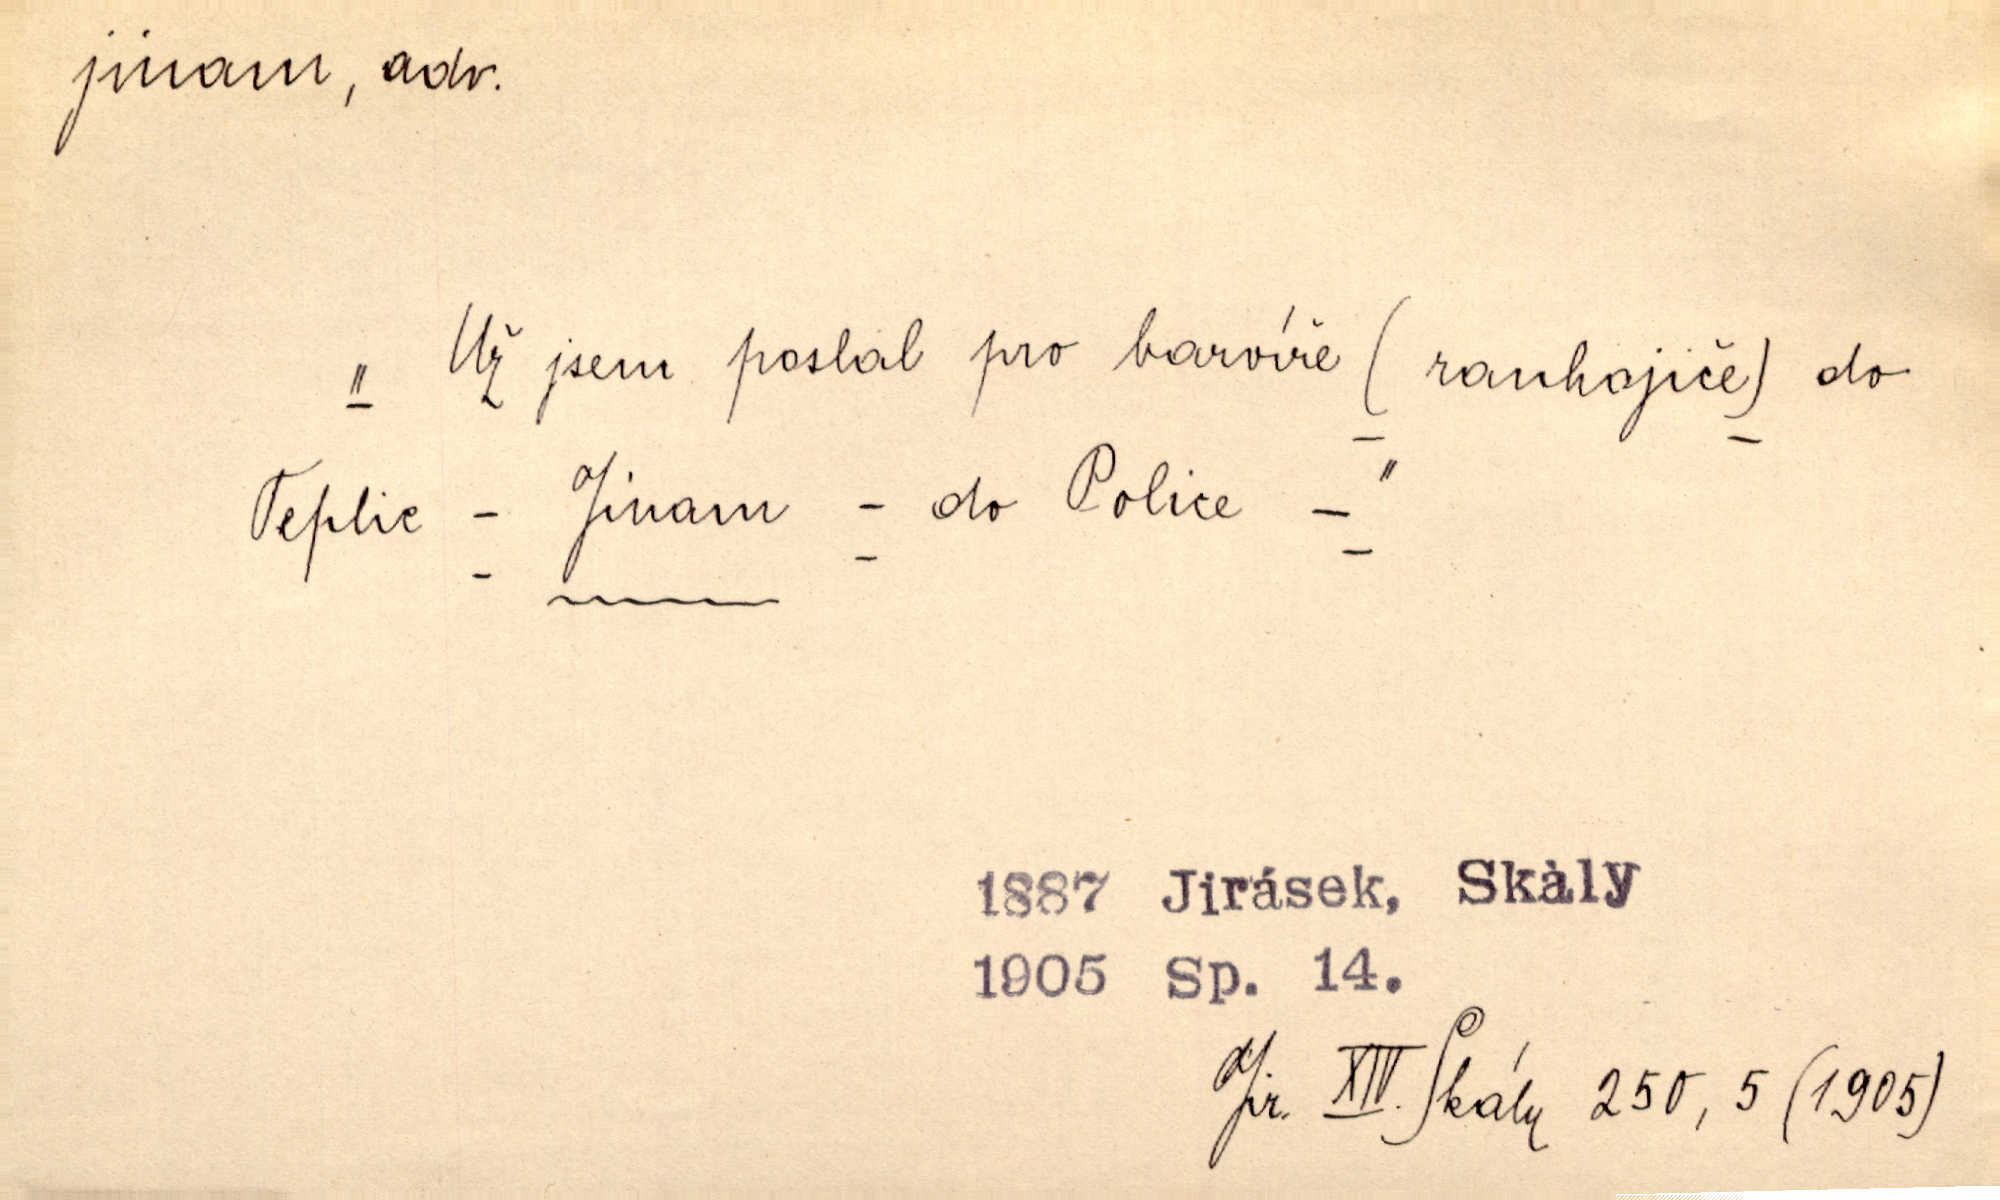 jinam, adv.
„Už jsem poslal pro barvíře (ranhojiče) do
Teplic - Jinam - do Police -"
1887 Jirásek, Skály
1905 Sp. 14.
Jir. XIV. Skály 250, 5 (1905)